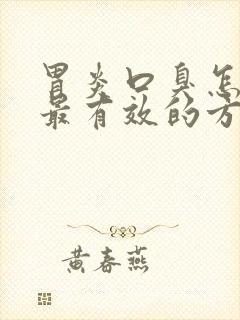 胃炎口臭怎
最有效的方
黄春燕